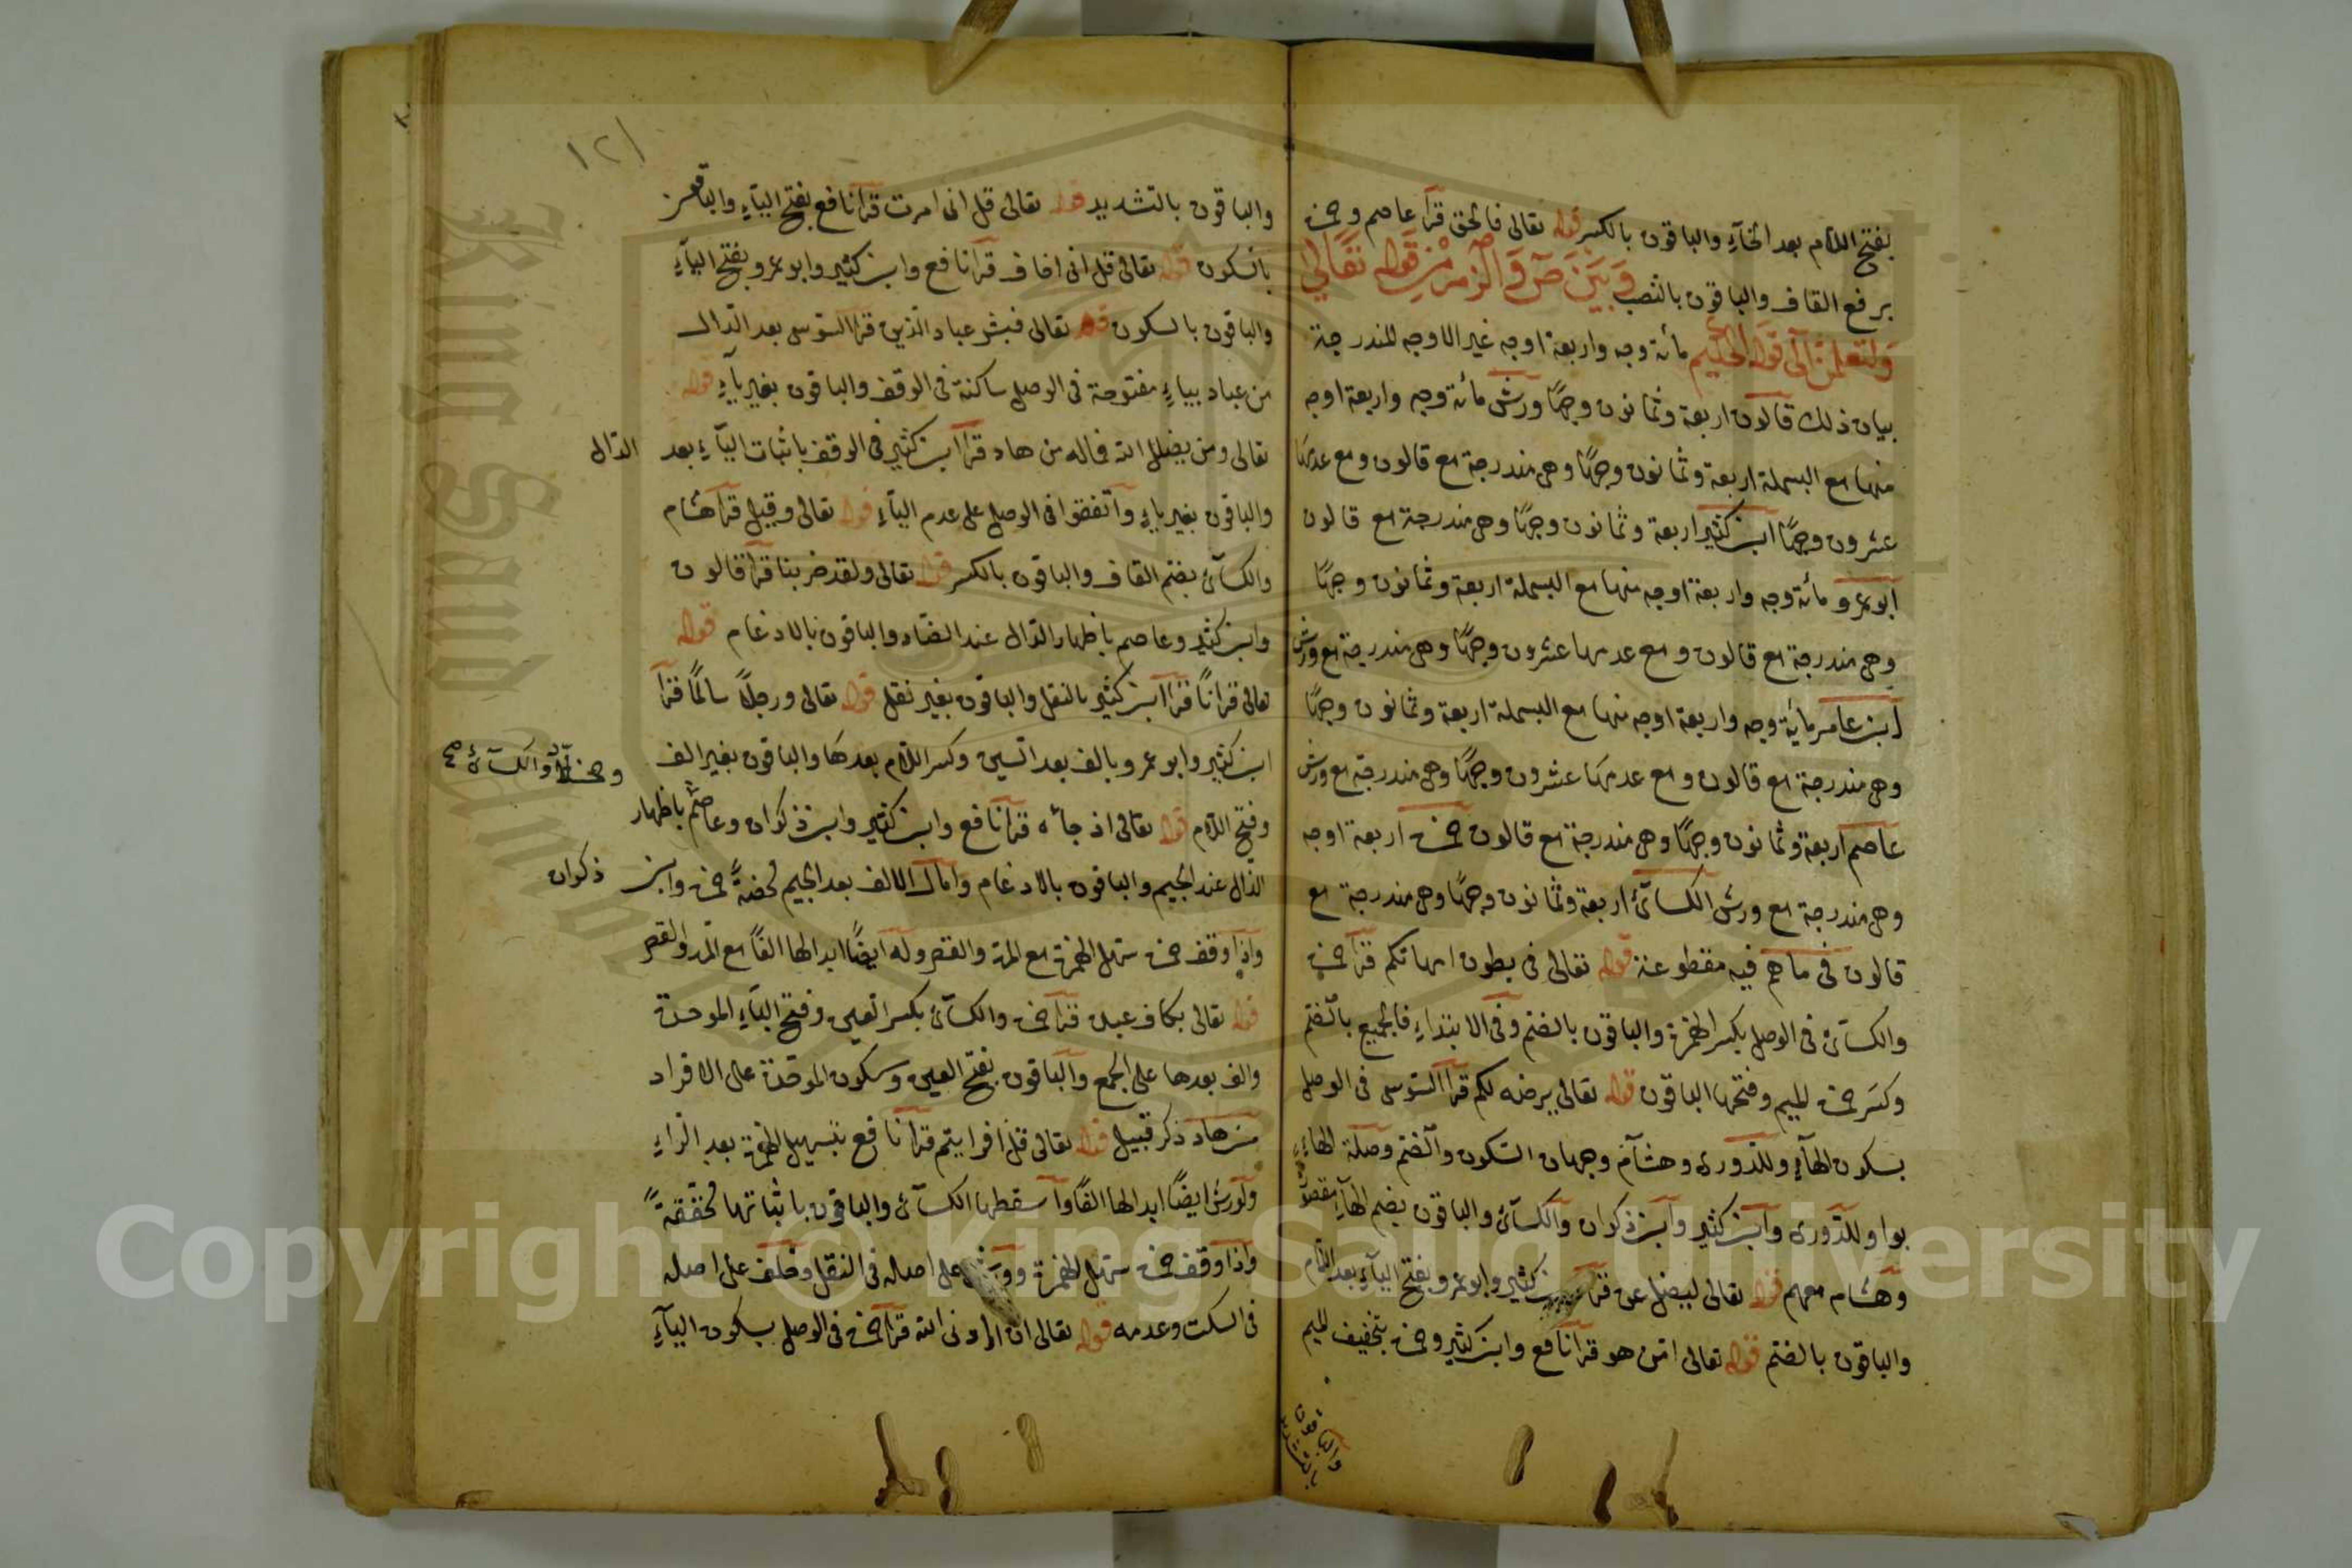 بفتح اللام بعد الخآء والباقون بالكسر قوله تعالى فالحق قرأ عاصم وحمزة
برفع القاف والباقون بالنصب وبين ص والزمر من قوله تعالى
ولتعلمن الى قوله الحكيم مائة وجه واربعة اوجه غير الاوجه المندرجة
بيان ذلك قالون اربعة وثمانون وجهًا ورش مائة وجه واربعة اوجه
منها مع البسملة اربعة وثمانون وجهًا وهى مندرجة مع قالون ومع عدمها
عشرون وجهًا ابن كثير اربعة وثمانون وجهًا وهى مندرجة مع قالون
ابوعمرو مائة وجه واربعة اوجه منها مع البسملة اربعة وثمانون وجهًا
وهى مندرجة مع قالون ومع عدمها عشرون وجهًا وهى مندرجة مع ورش
ابن عامر مائة وجه واربعة اوجه منها مع البسملة اربعة وثمانون وجهًا
وهى مندرجة مع قالون ومع عدمها عشرون وجهًا وهى مندرجة مع ورش
عاصم اربعة وثمانون وجهًا وهى مندرجة مع قالون حمزة اربعة اوجه
وهى مندرجة مع ورش الكسآئى اربعة وثمانون وجهًا وهى مندرجة مع
قالون فى ما هم فيه مقطوعة قوله تعالى فى بطون امهاتكم قرأ حمزة
والكسآئى فى الوصل بكسر الهمزة والباقون بالضم وفى الابتداء فالجميع بالضم
وكسر حمزة الميم وفتحها الباقون قوله تعالى يرضه لكم قرأ السوسى فى الوصل
بسكون الهآء وللدورى وهشام وجهان السكون والضم وصلة الهاء
بواو للدورى وابن كثير وابن ذكوان والكسآئى والباقون بضم الهآء مقصورًا
وهشام معهم قوله تعالى ليضل عن قرأ ابن كثير وابوعمرو بفتح اليآء بعد اللام
والباقون بالضم قوله تعالى امن هو قرأ نافع وابن كثير وحمزة بتخفيف الميم
والباقون
بالتشديد
١٢١
والباقون بالتشديد قوله تعالى قل انى امرت قرأ نافع بفتح اليآء والباقون
بالسكون قوله تعالى قل انى اخاف قرأ نافع وابن كثير وابوعمرو بفتح اليآء
والباقون بالسكون قوله تعالى فبشر عباد الذين قرأ السوسى بعد الدال
من عباد بياء مفتوحة فى الوصل ساكنة فى الوقف والباقون بغير ياء قوله
تعالى ومن يضلل الله فماله من هاد قرأ ابن كثير فى الوقف باثبات اليآء بعد الدال
والباقون بغير ياء واتفقوا فى الوصل على عدم اليآء قوله تعالى وقيل قرأ هشام
والكسآئى بضم القاف والباقون بالكسر قوله تعالى ولقد ضربنا قرأ قالون
وابن كثير وعاصم باظهار الدال عند الضاد والباقون بالادغام قوله
تعالى قرانًا قرأ ابن كثير بالنقل والباقون بغير نقل قوله تعالى ورجلاً سالمًا قرأ
ابن كثير وابوعمرو بالف بعد السين وكسر اللام بعدها والباقون بغير الف
وفتح اللام قوله تعالى اذ جآءه قرأ نافع وابن كثير وابن ذكوان وعاصم باظهار
وخلاد والكسآئى صح
الذال عند الجيم والباقون بالادغام وامال الالف بعد الجيم محضةً حمزة وابن ذكوان
واذا وقف حمزة سهل الهمزة مع المد والقصر وله ايضًا ابدالها الفًا مع المد والقصر
قوله تعالى بكاف عبده قرأ حمزة والكسآئى بكسر العين وفتح البآء الموحدة
والف بعدها على الجمع والباقون بفتح العين وسكون الموحدة على الافراد
من هاد ذكر قبيل قوله تعالى قل افرايتم قرأ نافع بتسهيل الهمزة بعد الراء
ولورش ايضًا ابدالها الفًا واسقطها الكسآئى والباقون باثباتها محققةً
واذا وقف حمزة سهل الهمزة وورش على اصله فى النقل وخلف على اصله
فى السكت وعدمه قوله تعالى ان ارادنى الله قرأ حمزة فى الوصل بسكون اليآء
King Saud University
Copyright © King Saud University